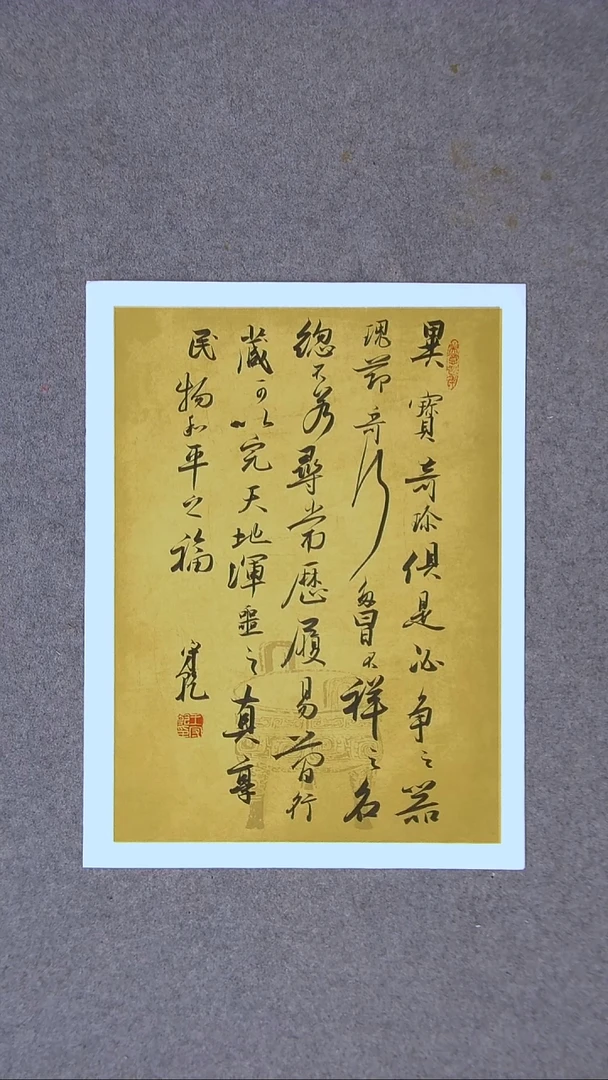 異寶奇珍俱是必爭之器
瑰節奇行多冒不祥之名
總不若尋常歷履易簡行
藏可以完天地渾噩之真享
民物和平之福